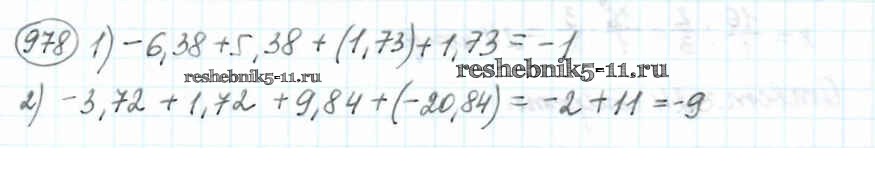 978 1) -6,38 + 5,38 + (1,73) + 1,73 = -1
reshebnik5-11.ru
reshebnik5-11.ru
2) -3,72 + 1,72 + 9,84 + (-20,84) = -2 + 11 = -9